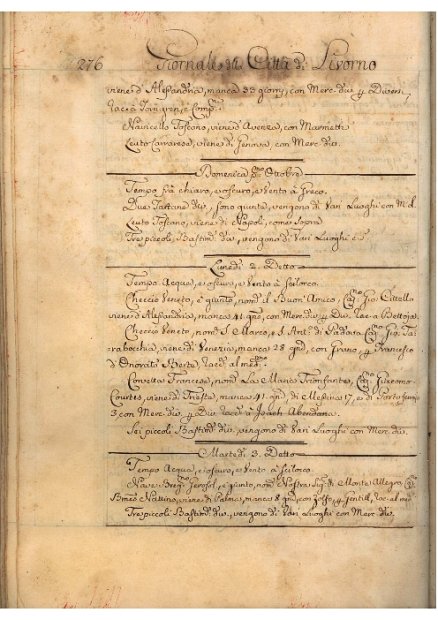 276 Giornale della Città di Livorno
viene d'Alessandria, manca 33 giorni, con Merc. div. p Diversi,
Navicello Toscano, viene d'Avenza, con Marmetti
Leuto Carrarese, viene di Genova, con Merc. div.
Domenica Ottobre
Tempo frà chiaro, e oscuro, e Vento à Greco.
Due Tartane div., sono giunte, vengono di Vari Luoghi con M. d.
Leuto Toscano, viene di Napoli, come sopra
Tre piccoli Bastim. div., vengono di Vari Luoghi
Lunedì 2. Detto
Tempo Acqua, e oscuro, e Vento à Scilocco.
Checcio Veneto, è giunto, nom. il Buon' Amico, Cap. Gio. Cittella
viene d'Alessandria, manca 41 gni, con Merc. div. p Div. Rac. a
Checcio Veneto, nom. S. Marco, e S. Ant. di Padova Cap. Gio.
viene di Venezia, manca 28 gni, con Grano, p Francesco
d'Onorato Berte, Racc. al med.
Corvetta Francese, nom. La Maria Trionfante, Cap.
viene di Tresta, manca 41 gni, di Messina 17, e di
3 con Merc. div. p Div. Racc. à Isach Abendana.
Sei piccoli Bastim. div. vengono di Vari Luoghi con Merc. div.
Martedì 3. Detto
Tempo Acqua, e oscuro, e Vento à Scilocco.
Nave è giunto, nom. Nostra Sig. di Monte Allegro, Cap.
viene di Palma, manca 8 gni, con Zolfo, p Gentill, Rac. al med.
Tre piccoli Bastim. div., vengono di Vari Luoghi con Merc. div.